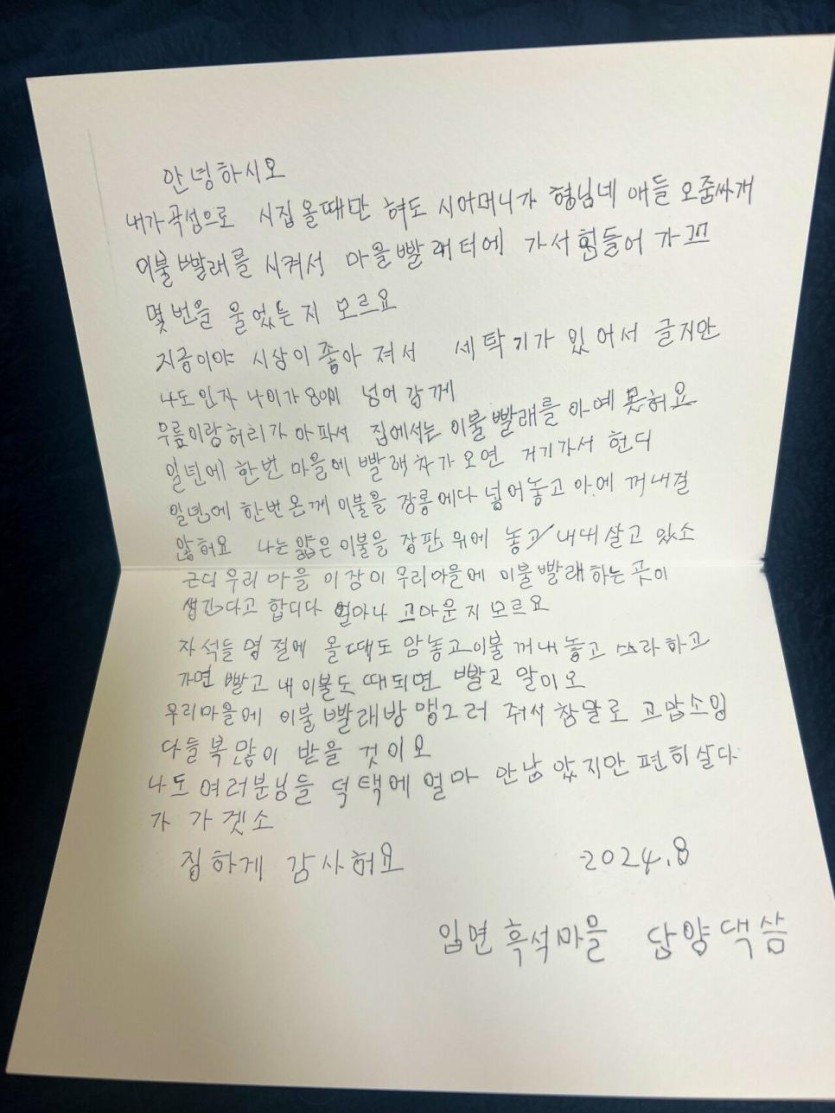 안녕하시오
내가 곡성으로 시집 올때만 혀도 시어머니가 형님네 애들 오줌싸게
이불 빨래를 시켜서 마을 빨래터에 가서 힘들어 가꼬
몇번을 울었는지 모르요
지금이야 시상이 좋아 져서 세탁기가 있어서 글지만
나도 인자 나이가 80이 넘어 강께
무릎이랑 허리가 아파서 집에서는 이불 빨래를 아예 못허요
일년에 한번 마을에 빨래차가 오면 거기가서 헌디
일년에 한번 온께 이불을 장롱에다 넣어놓고 아에 꺼내질
않허요 나는 얇은 이불을 장판 위에 놓고 내대 살고 있소
근디 우리 마을 이장이 우리마을에 이불 빨래 하는 곳이
생긴다고 합디다 얼마나 고마운지 모르요
자석들 명절에 올 때도 맘놓고 이불 꺼내 놓고 쓰라 하고
가면 빨고 내 이불도 때되면 빨고 말이오
우리마을에 이불 빨래방 맹그러 줘서 참말로 고맙소잉
다들 복 많이 받을 것이오
나도 여러분님들 덕택에 얼마 안남았지만 편히 살다
가 가겟소
짐하게 감사혀요 2024.8
입면 흑석마을 담양댁 씀